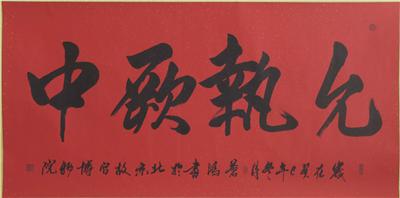 允執厥中
歲在癸巳年冬月善鴻書於北京故宮博物院